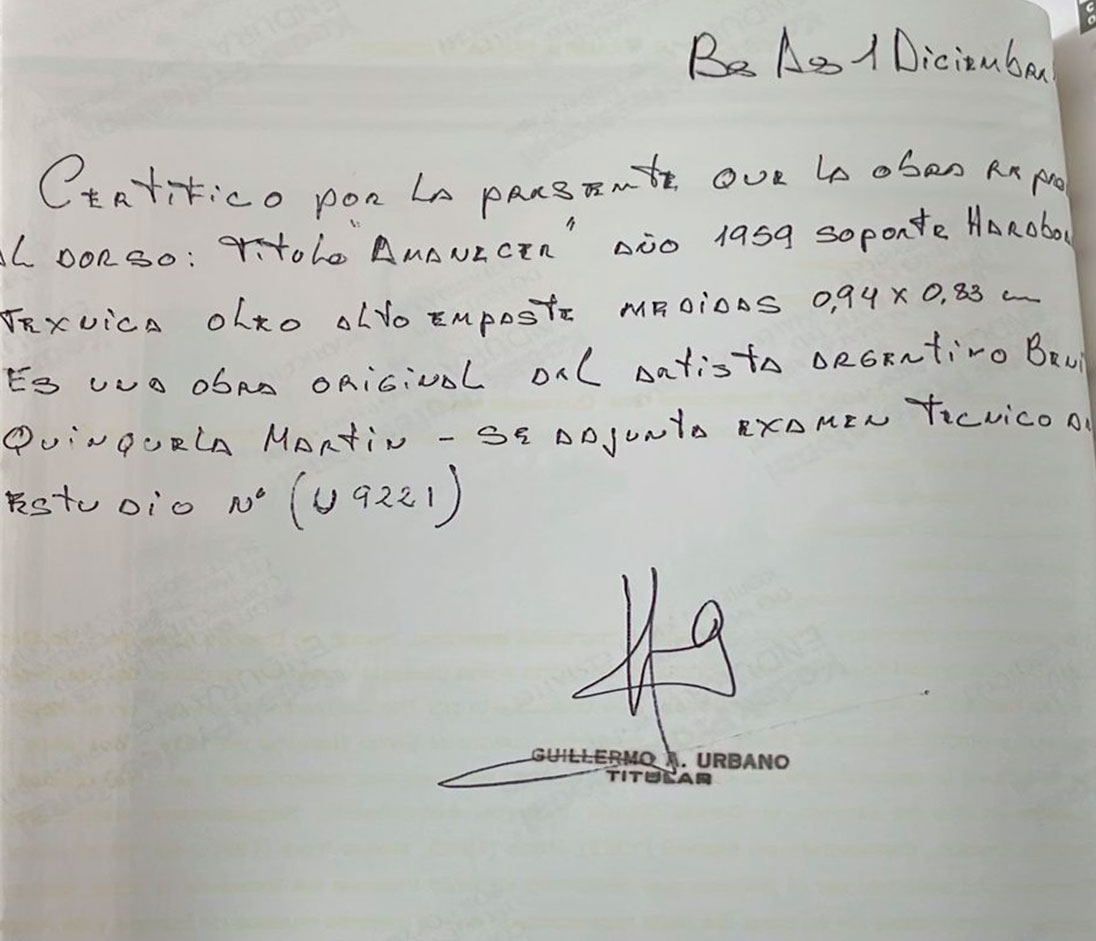 Bs As 1 Diciembre
Certifico por la presente que la obra repro
al dorso: titulo "Amanecer" año 1959 soporte Harobor
texnica oleo alto empaste medidas 0,94 x 0,83 cm
Es una obra original del artista argentino Beni
Quinquela Martin - se adjunta examen tecnico de
estudio N° (U 9221)
GUILLERMO A. URBANO
TITULAR